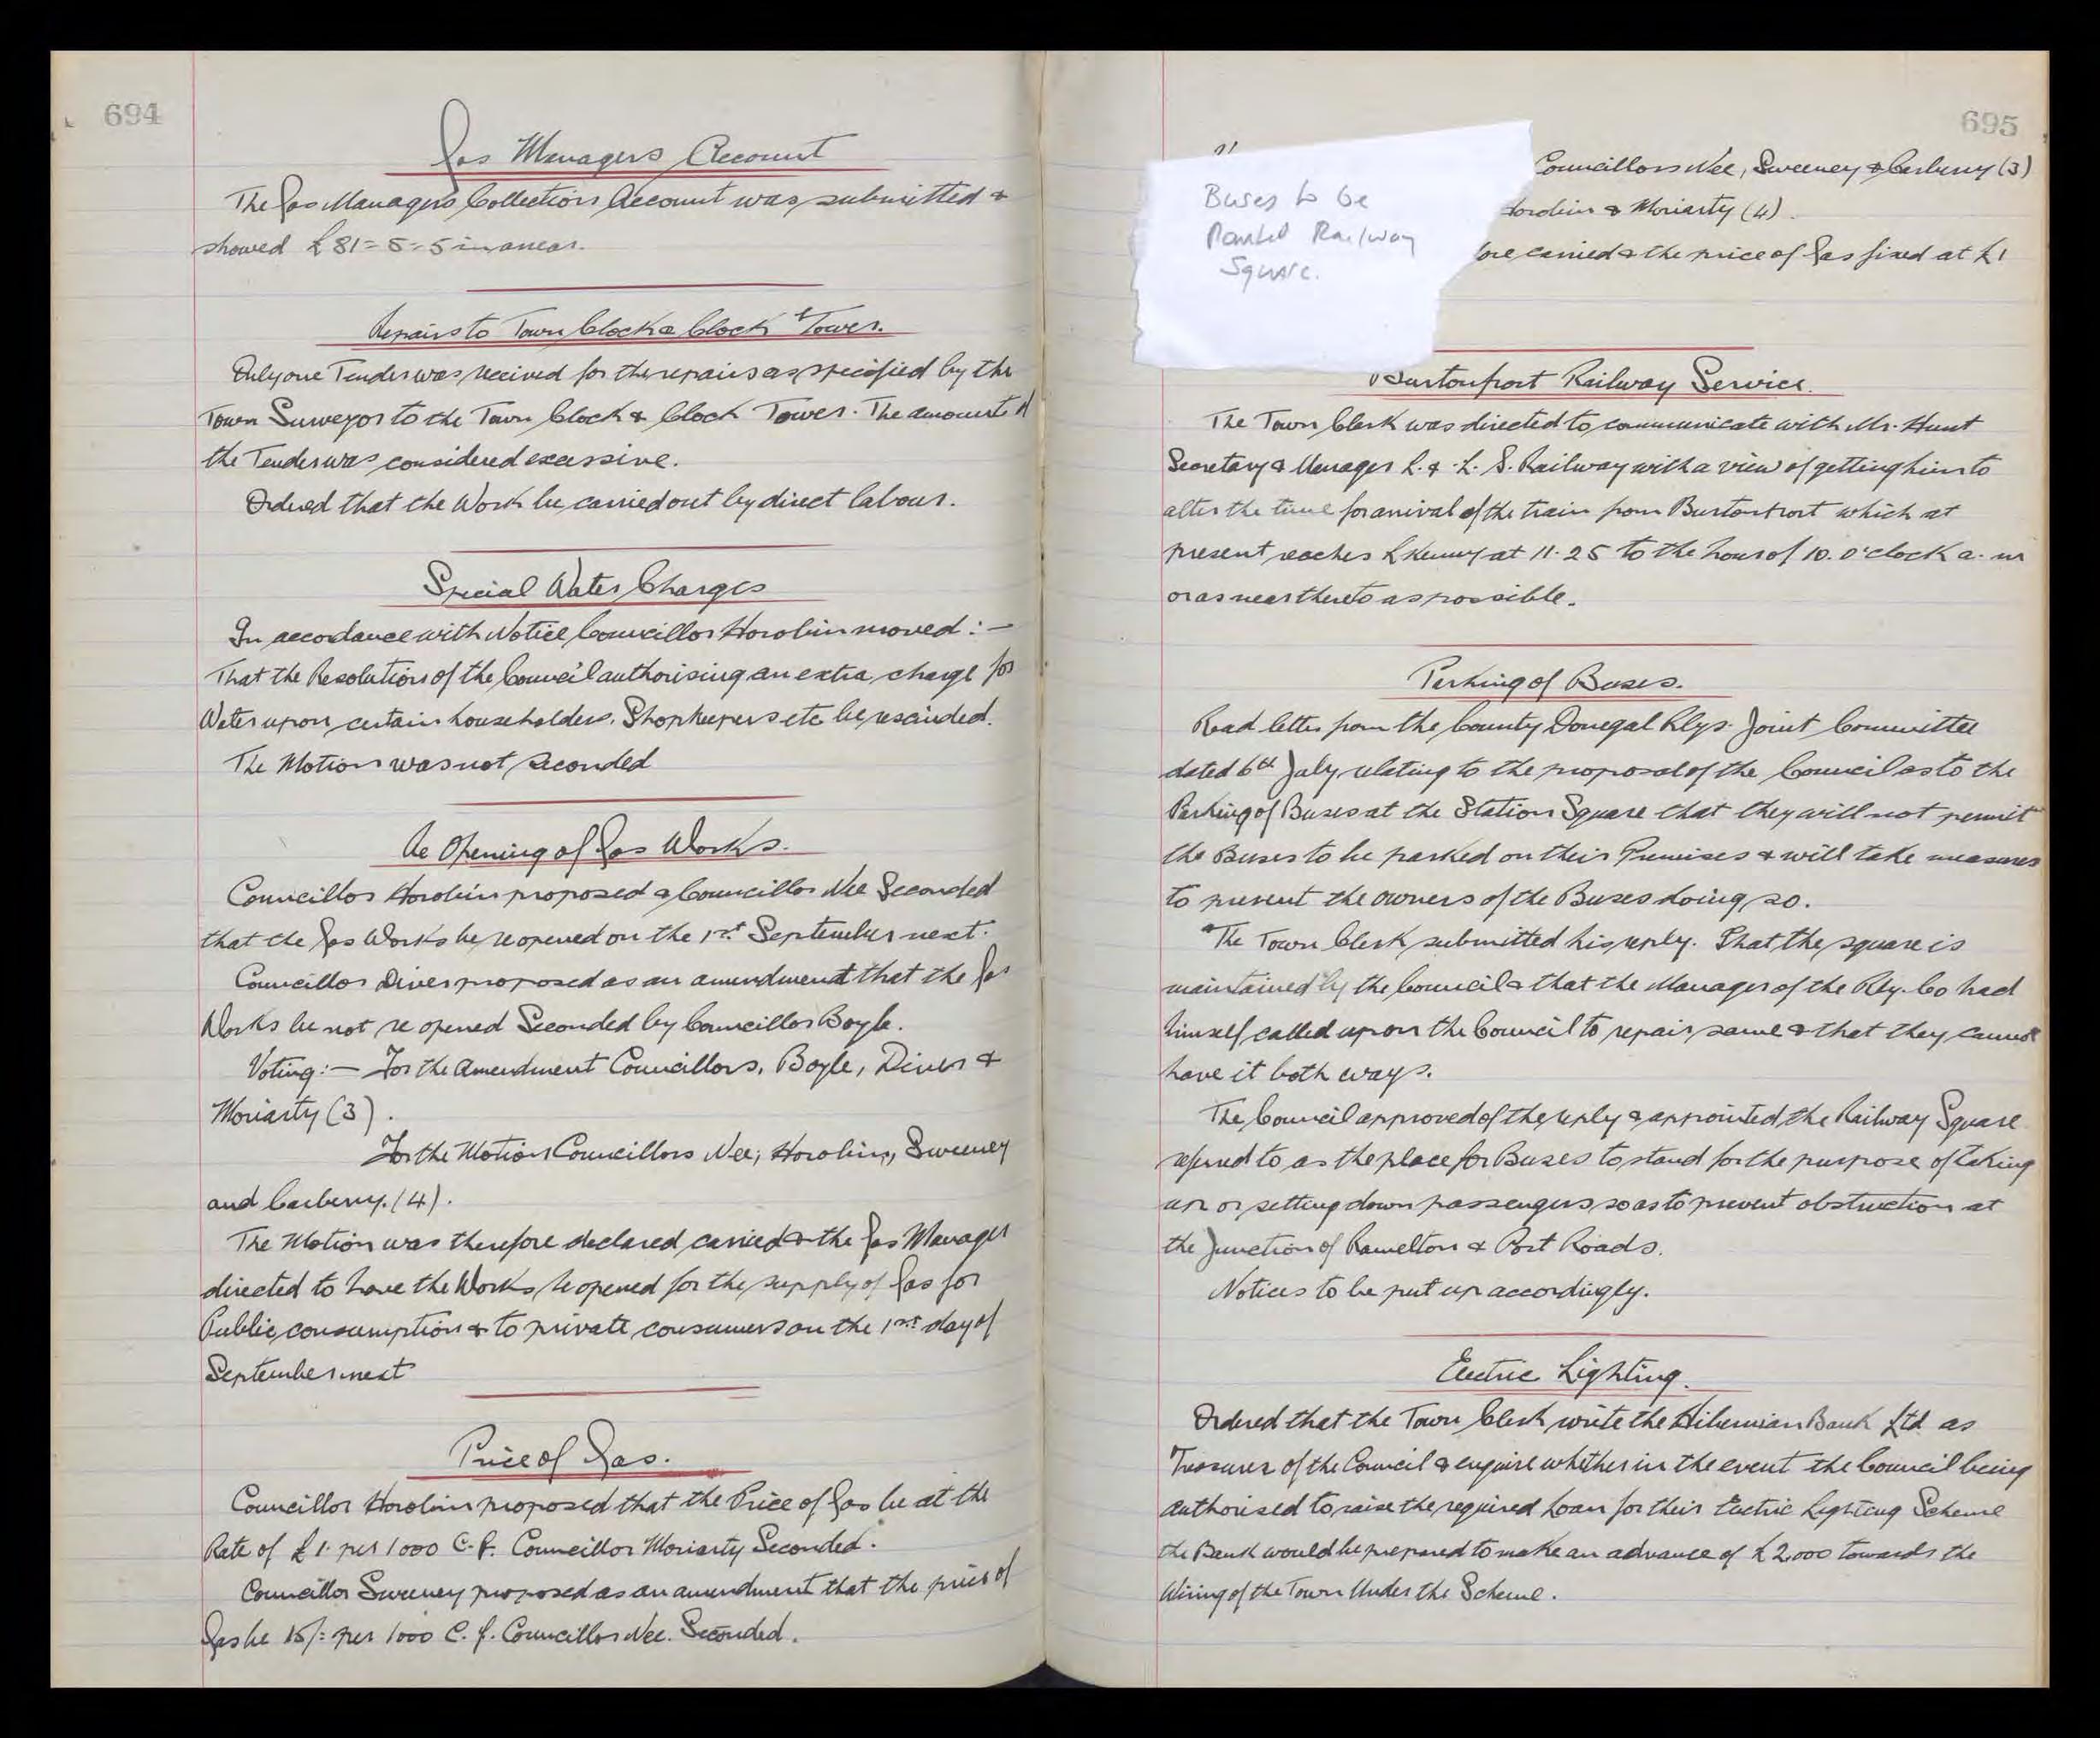 694
Gas Managers Account
The Gas Managers Collection Account was submitted &
showed £81=5=5 in arrear.
Repairs to Town Clock & Clock Tower.
Only one Tender was received for the repairs as specified by the
Town Surveyor to the Town Clock & Clock Tower. The amount of
the Tender was considered excessive.
Ordered that the Work be carried out by direct labour.
Special Water Charges
In accordance with Notice Councillor Horobin moved:—
That the Resolution of the Council authorising an extra charge for
Water upon certain householders, Shopkeepers etc be rescinded.
The Motion was not seconded
Re Opening of Gas Works.
Councillor Horobin proposed & Councillor Nee Seconded
that the Gas Works be reopened on the 1st September next.
Councillor Diver proposed as an amendment that the Gas
Works be not re opened Seconded by Councillor Boyle.
Voting:— For the Amendment Councillors, Boyle, Diver &
Moriarty (3).
For the Motion Councillors Nee, Horobin, Sweeney
and Carberry. (4).
The Motion was therefore declared carried & the Gas Manager
directed to have the Works reopened for the supply of Gas for
Public consumption & to private consumers on the 1st day of
September next
Price of Gas.
Councillor Horobin proposed that the Price of Gas be at the
Rate of £1. per 1000 C.F. Councillor Moriarty Seconded.
Councillor Sweeney proposed as an amendment that the price of
Gas be 15/= per 1000 C.f. Councillor Nee. Seconded.
695
Buses to be
Parked Railway
Square.
Councillors Nee, Sweeney & Carberry (3)
Horobin & Moriarty (4).
fore carried & the price of Gas fixed at £1
Burtonport Railway Service.
The Town Clerk was directed to communicate with Mr. Hunt
Secretary & Manager L. & L. S. Railway with a view of getting him to
alter the time for arrival of the train from Burtonport which at
present reaches LKenny at 11.25 to the hour of 10. o'clock a.m
or as near thereto as possible.
Parking of Buses.
Read letter from the County Donegal Rlys. Joint Committee
dated 6th July relating to the proposal of the Council as to the
Parking of Buses at the Station Square that they will not permit
the Buses to be parked on their Premises & will take measures
to prevent the owners of the Buses doing so.
The Town Clerk submitted his reply. That the square is
maintained by the Council & that the Manager of the Rly. Co had
himself called upon the Council to repair same & that they cannot
have it both ways.
The Council approved of the reply & appointed the Railway Square
referred to as the place for Buses to stand for the purpose of taking
up or setting down passengers so as to prevent obstruction at
the Junction of Ramelton & Port Roads.
Notices to be put up accordingly.
Electric Lighting.
Ordered that the Town Clerk write the Hibernian Bank Ltd. as
Treasurer of the Council & enquire whether in the event the Council being
authorised to raise the required Loan for their Electric Lighting Scheme
the Bank would be prepared to make an advance of £2,000 towards the
Wiring of the Town Under the Scheme.